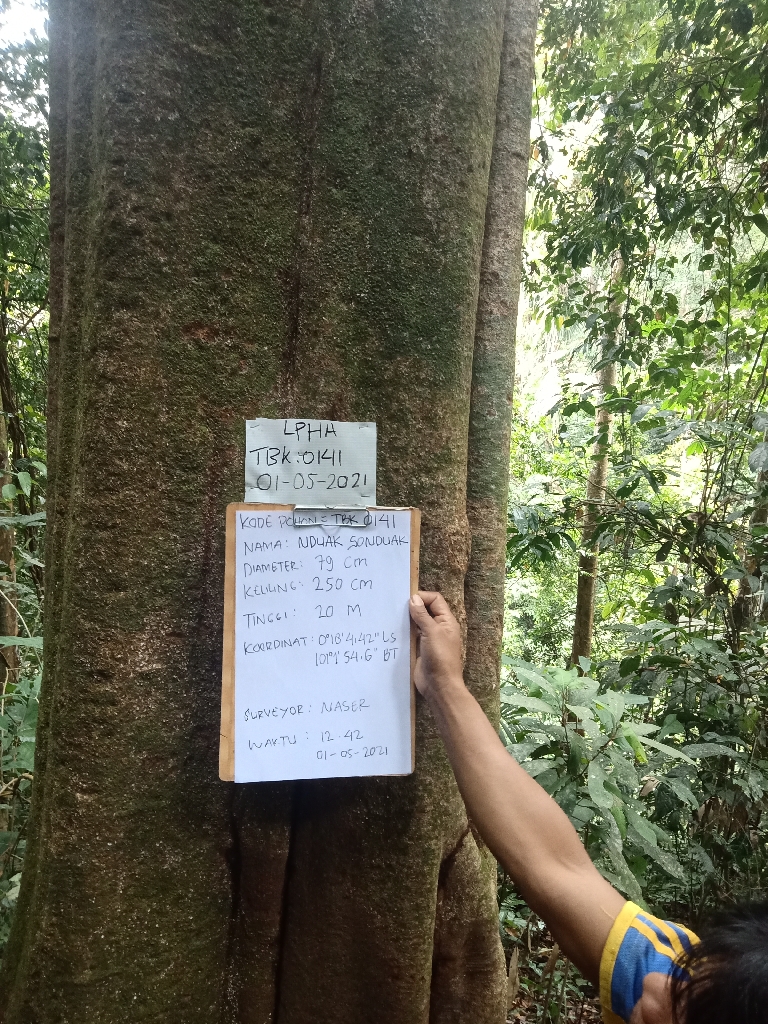 LPHA
TBK: 0141
01-05-2021
KODE POHON: TBK 0141
NAMA: NDUAK SONDUAK
DIAMETER: 79 Cm
KELILING: 250 CM
TINGGI: 20 M
KOORDINAT: 0°18'4,42" LS
101°1'54.6" BT
SURVEYOR: NASER
WAKTU: 12.42
01-05-2021